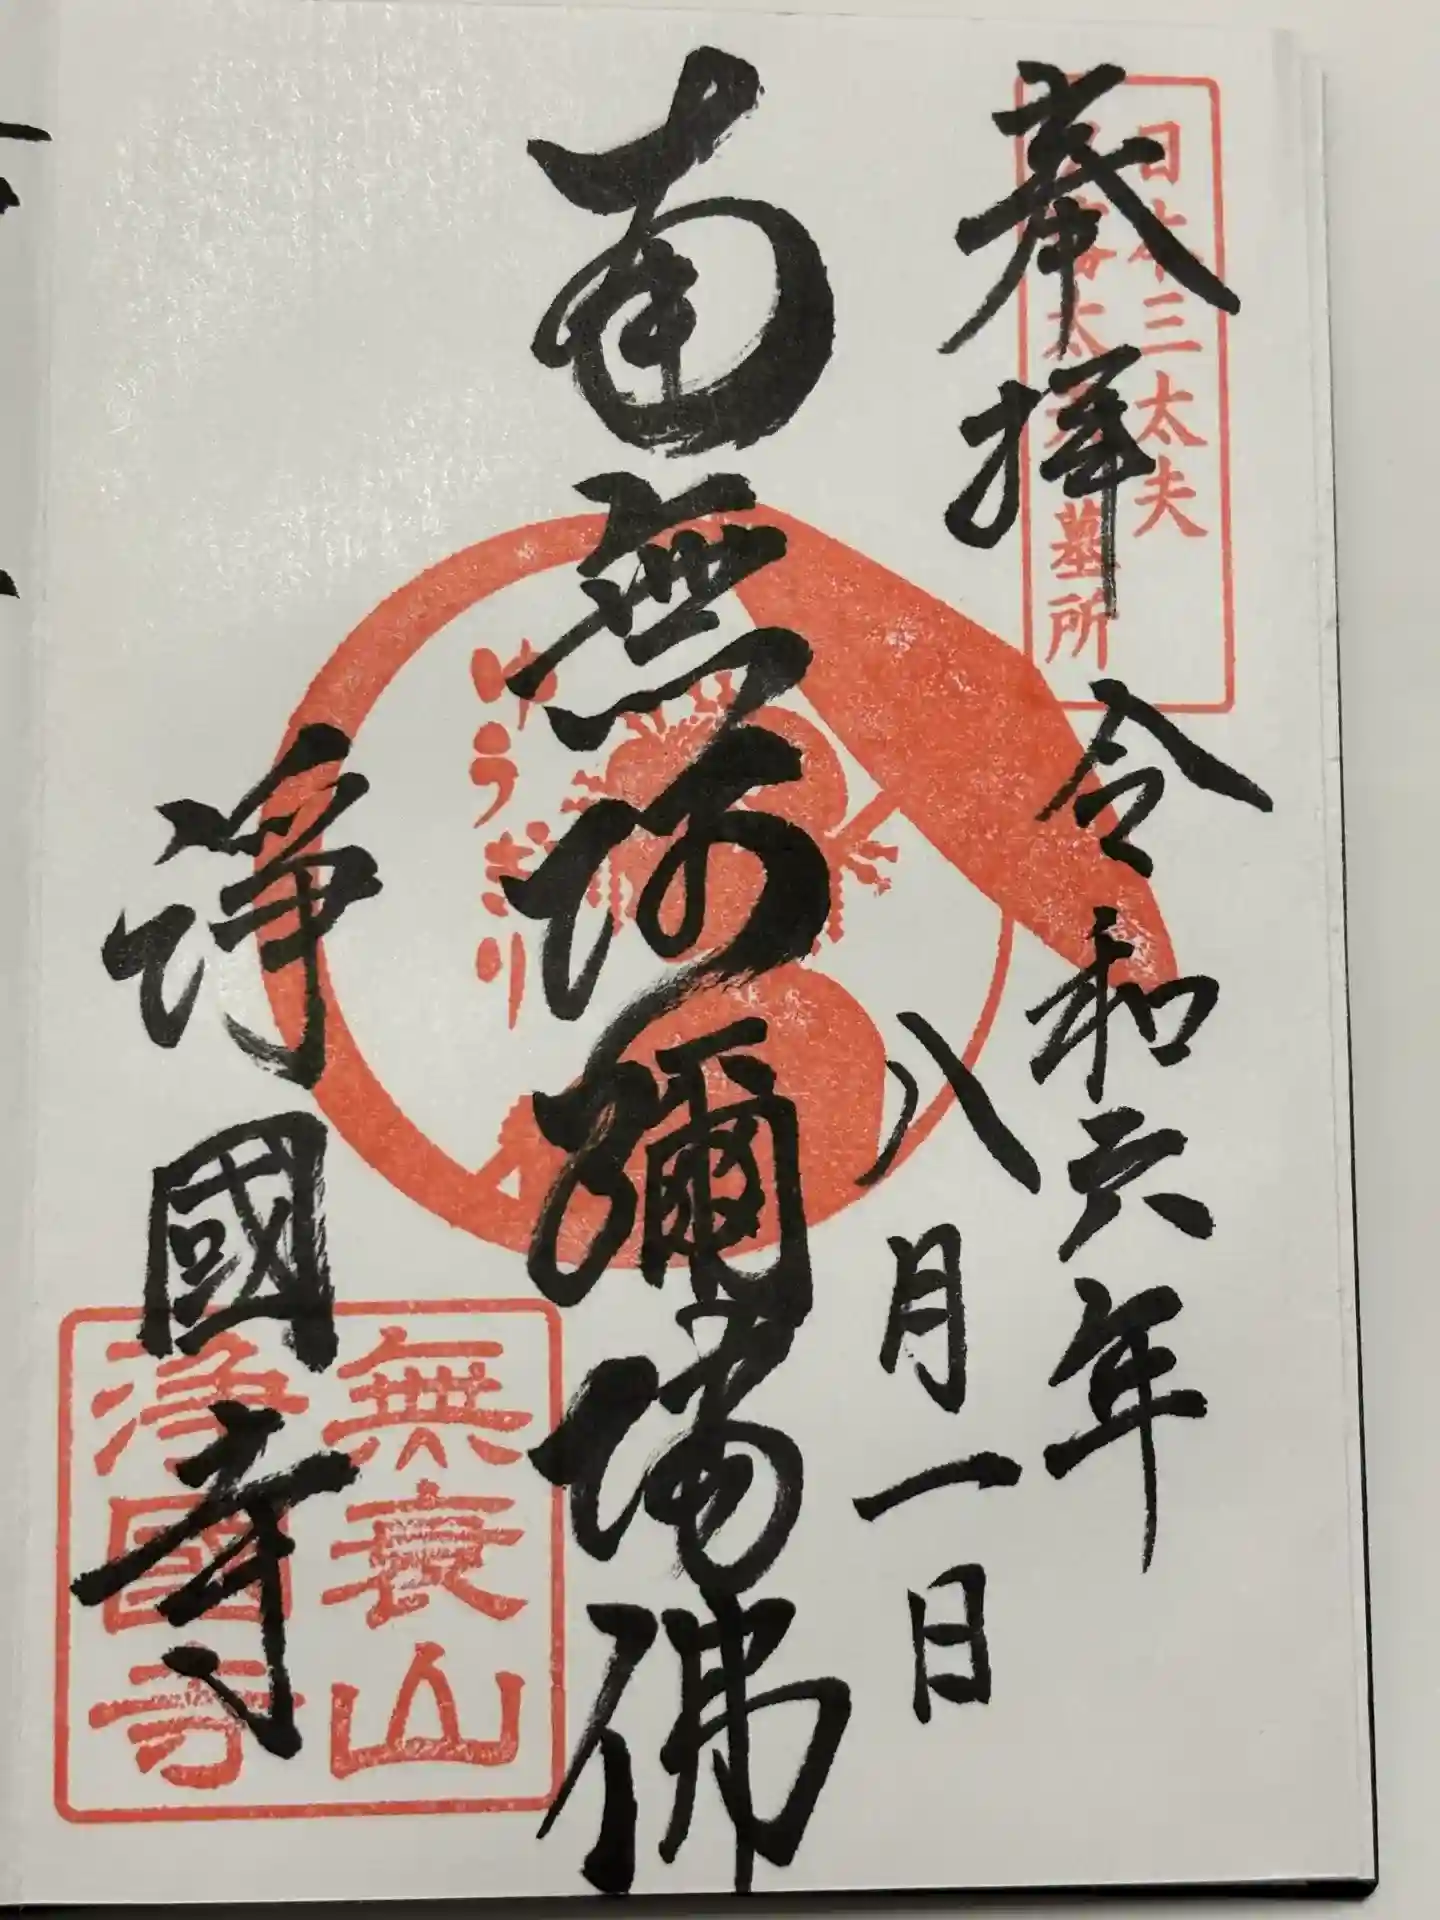 奉拝
日本三太夫
太夫墓所
令和六年
八月一日
南無阿彌陀佛
ゆうぎり
淨國寺
無衰山
淨國寺